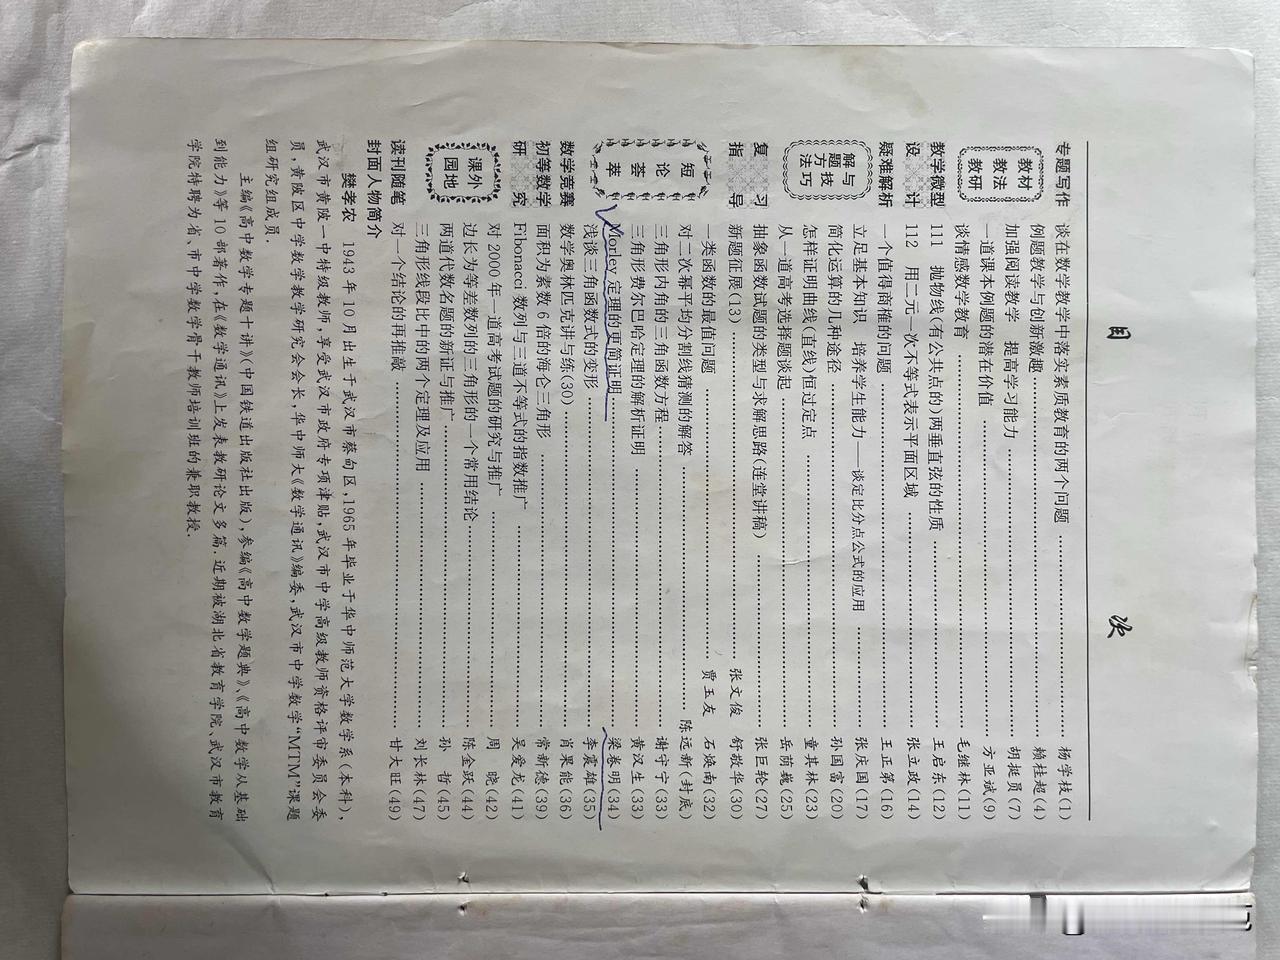 目 次
专题写作 谈在数学教学中落实素质教育的两个问题 …… 杨学枝(1)
教材教法教研 例题教学与创新激趣 …… 赖桂超(4)
加强阅读教学 提高学习能力 …… 胡挺员(7)
一道课本例题的潜在价值 …… 方亚斌(9)
谈情感数学教育 …… 毛继林(11)
数学微型设计 111 抛物线(有公共点的)两垂直弦的性质 …… 王启东(12)
112 用二元一次不等式表示平面区域 …… 张立政(14)
疑难解析 一个值得商榷的问题 …… 王正第(16)
解题方法与技巧 立足基本知识 培养学生能力——谈定比分点公式的应用 …… 张庆国(17)
简化运算的几种途径 …… 孙国富(20)
怎样证明曲线(直线)恒过定点 …… 童其林(23)
从一道高考选择题谈起 …… 岳荫巍(25)
复习指导 抽象函数试题的类型与求解思路(连堂讲稿) …… 张巨轮(27)
新题征展(13) …… 张文俊 舒敬华(30)
短论荟萃 一类函数的最值问题 …… 贾玉友 石焕南(32)
对二次幂平均分割线猜测的解答 …… 陈远新(封底)
三角形内角的三角函数方程 …… 谢守宁(33)
三角形费尔巴哈定理的解析证明 …… 黄汉生(33)
Morley 定理的更简证明 …… 梁卷明(34)
浅谈三角函数式的变形 …… 李震雄(35)
数学竞赛 数学奥林匹克讲与练(30) …… 肖果能(36)
初等数学研究 面积为素数 6 倍的海仑三角形 …… 常新德(39)
Fibonacci 数列与三道不等式的指数推广 …… 吴爱龙(41)
课外园地 对 2000 年一道高考试题的研究与推广 …… 周 晓(42)
边长为等差数列的三角形的一个常用结论 …… 陈金跃(44)
两道代数名题的新证与推广 …… 孙 哲(45)
三角形线段比中的两个定理及应用 …… 刘长林(47)
读刊随笔 对一个结论的再推敲 …… 甘大旺(49)
封面人物简介
樊孝农 1943 年 10 月出生于武汉市蔡甸区,1965 年毕业于华中师范大学数学系(本科),
武汉市黄陂一中特级教师,享受武汉市政府专项津贴,武汉市中学高级教师资格评审委员会委
员,黄陂区中学数学教学研究会会长,华中师大《数学通讯》编委,武汉市中学数学“MTM”课题
组研究组成员.
主编《高中数学专题十讲》(中国铁道出版社出版),参编《高中数学题典》、《高中数学从基础
到能力》等 10 部著作,在《数学通讯》上发表教研论文多篇,近期被湖北省教育学院、武汉市教育
学院特聘为省、市中学数学骨干教师培训班的兼职教授.